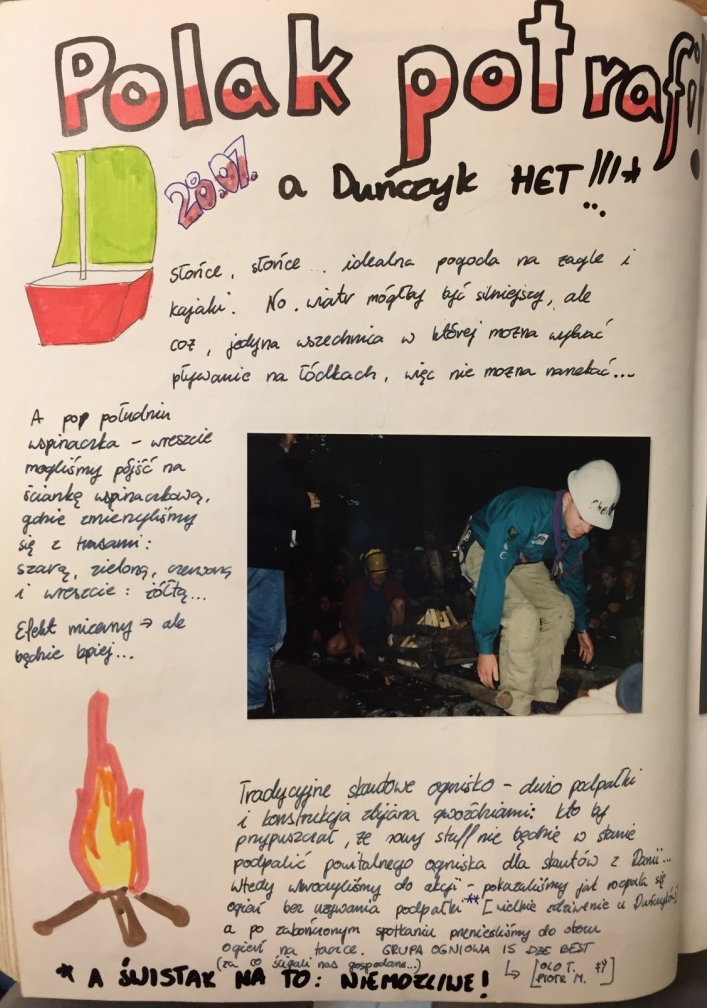 Polak potrafi!
28.07.
a Duńczyk HET !!!*
słońce, słońce... idealna pogoda na żagle i
kajaki. No. wiatr mógłby być silniejszy, ale
coż, jedyna wszechnica w której można wybrać
pływanie na łódkach, więc nie można narzekać...
A pop południu
wspinaczka - wreszcie
mogliśmy pójść na
ściankę wspinaczkową,
gdzie zmierzyliśmy
się z trasami:
szarą, zieloną, czerwoną
i wreszcie: żółtą...
Efekt mizerny → ale
będzie lepiej...
Chek
Tradycyjne skautowe ognisko - dużo podpałki
i konstrukcja zbijana gwoździami: kto by
przypuszczał, że nowy staff nie będzie w stanie
podpalić powitalnego ogniska dla skautów z Danii...
wtedy wkroczyliśmy do akcji - pokazaliśmy jak rozpala się
ogień bez używania podpałki ** [wielkie zdziwienie u Duńczyków]
a po zakończonym spotkaniu przenieśliśmy do obozu
ogień na tacce. GRUPA OGNIOWA IS DZE BEST
(za co ścigali nas gospodarze...) ↳ [OLO T.
PIOTR M.]
* A ŚWISTAK NA TO: NIEMOŻLIWE!